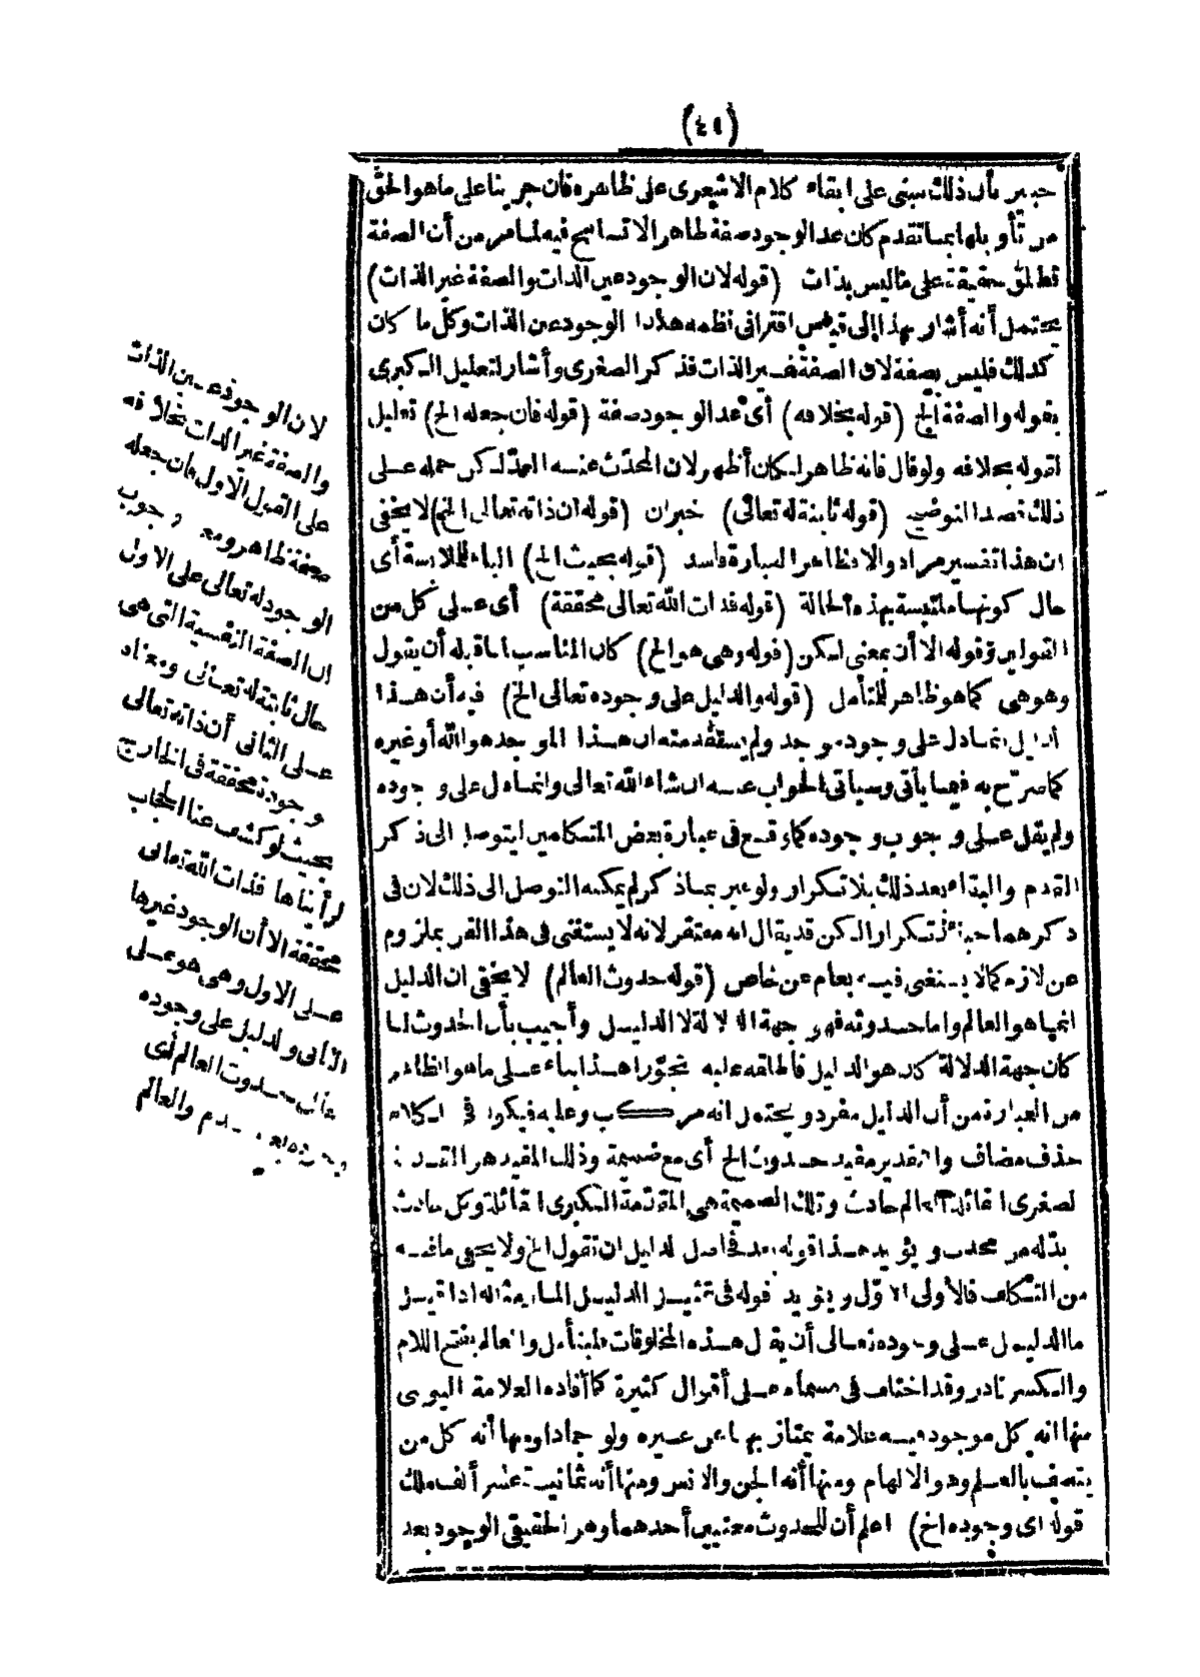 (٤١)
خبير بأن ذلك مبنى على ابقاء كلام الاشعرى على ظاهره فان جرينا على ما هو الحق
من تأويلها بما تقدم كان عد الوجود صفة ظاهرا لا تسامح فيه لما مر من أن الصفة
تطلق حقيقة على ما ليس بذات (قوله لان الوجود عين الذات والصفة غير الذات)
يحتمل أنه أشار بهذا إلى قياس اقترانى نظمه هكذا الوجود عين الذات وكل ما كان
كذلك فليس بصفة لان الصفة غير الذات فذكر الصغرى وأشار لتعليل الكبرى
بقوله والصفة الخ (قوله بخلافه) أى عد الوجود صفة (قوله فان جعله الخ) تعليل
لقوله بخلافه ولو قال فانه ظاهر لكان أظهر لان المحدث عنه العد لكن حمله على
ذلك قصد التوضيح (قوله ثابتة له تعالى) خبر ان (قوله ان ذاته تعالى الخ) لا يخفى
ان هذا تفسير مراد والا فظاهر العبارة فاسد (قوله بحيث الخ) الباء للملابسة أى
حال كونها ملتبسة بهذه الحالة (قوله فذات الله تعالى محققة) أى على كل من
القولين وقوله الا أن بمعنى لكن (قوله وهى هو الخ) كان المناسب لما قبله أن يقول
وهو هى كما هو ظاهر للمتأمل (قوله والدليل على وجوده تعالى الخ) فيه أن هذا
الدليل انما دل على وجود موجد ولم يستفد منه ان هذا الموجد هو الله أو غيره
كما صرح به فيما يأتى وسيأتى الجواب عنه ان شاء الله تعالى وانما دل على وجوده
ولم يقل على وجوب وجوده كما وقع فى عبارة بعض المتكلمين ليتوصل الى ذكر
القدم والبقاء بعد ذلك بلا تكرار ولو عبر بما ذكر لم يمكنه التوصل الى ذلك لان فى
ذكرهما حينئذ تكرارا لكن قد يقال انه مغتفر لانه لا يستغنى فى هذا الفن بملزوم
عن لازم كما لا يستغنى فيه بعام عن خاص (قوله حدوث العالم) لا يخفى ان الدليل
انما هو العالم واما حدوثه فهو جهة الدلالة لا الدليل وأجيب بأن الحدوث لما
كان جهة الدلالة كان هو الدليل فأطلقه عليه تجوزا هذا بناء على ما هو الظاهر
من العبارة من أن الدليل مفرد ويحتمل انه مركب وعليه فيكون فى الكلام
حذف مضاف والتقدير مفيد حدوث الخ أى مع ضميمة وذلك المفيد هو المقدمة
لصغرى القائلة العالم حادث وتلك الضميمة هى المقدمة الكبرى القائلة وكل حادث
بد له من محدث ويؤيد هذا قوله بعد فحاصل الدليل ان تقول الخ ولا يخفى ما فيه
من التكلف فالأولى الاول ويؤيد قوله فى تقرير الدليل اذا قيل
ما الدليل على وجوده تعالى أن يقال هذه المخلوقات فليتأمل والعالم بفتح اللام
والكسر نادر وقد اختلف فى مسماه على أقوال كثيرة كما أفاده العلامة اليوسى
منها انه كل موجود فيه علامة يمتاز بها عن غيره ولو جمادا ومنها أنه كل من
يتصف بالعلم وهو الالهام ومنها أنه الجن والانس ومنها أنه ثمانية عشر ألف ملك
قوله اى وجوده الخ) اعلم أن للحدوث معنيين أحدهما وهو الحقيقى الوجود بعد
لان الوجود عين الذات
والصفة غير الذات بخلافه
على القول الاول فان جعله
صفة ظاهر ومعنى وجوب
الوجود له تعالى على الاول
ان الصفة النفسية التى هى
حال ثابتة له تعالى ومعناه
على الثانى أن ذاته تعالى
وجودة محققة فى الخارج
بحيث لو كشف عنا الحجاب
لرأيناها فذات الله تعالى
محققة الا أن الوجود غيرها
على الاول وهى هو على
الثانى والدليل على وجوده
تعالى حدوث العالم أى
وجوده بعد عدم والعالم